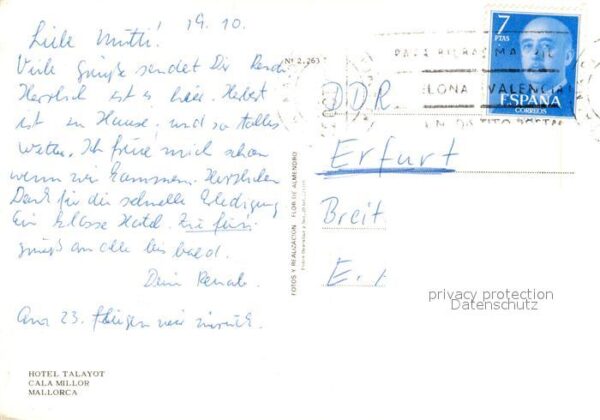 19.10.
Liebe Mutti!
Viele Grüße sendet Dir Renate.
Herrlich ist es hier. Herbst
ist zu Hause, und so tolles
Wetter. Ich freue mich schon
wenn wir kommen. Herzlichen
Dank für die schnelle Erledigung
Ein klasse Hotel.
grüß an alle bis bald.
Dein Renate
Am 23. fliegen wir zurück.
HOTEL TALAYOT
CALA MILLOR
MALLORCA
Nº 2.263
FOTOS Y REALIZACION FLOR DE ALMENDRO
7
PTAS
ESPAÑA
CORREOS
VALENCIA
DDR
Erfurt
Breit.
E.
privacy protection
Datenschutz